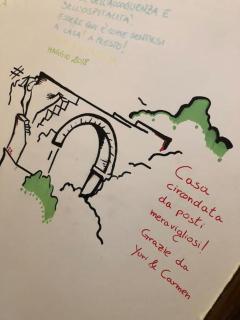 DELL'ACCOGLIENZA E
DELL'OSPITALITÀ
ESSERE QUI È COME SENTIRSI
A CASA! A PRESTO!
MAGGIO 2018
Casa
circondata
da posti
meravigliosi!
Grazie da
Yuri & Carmen